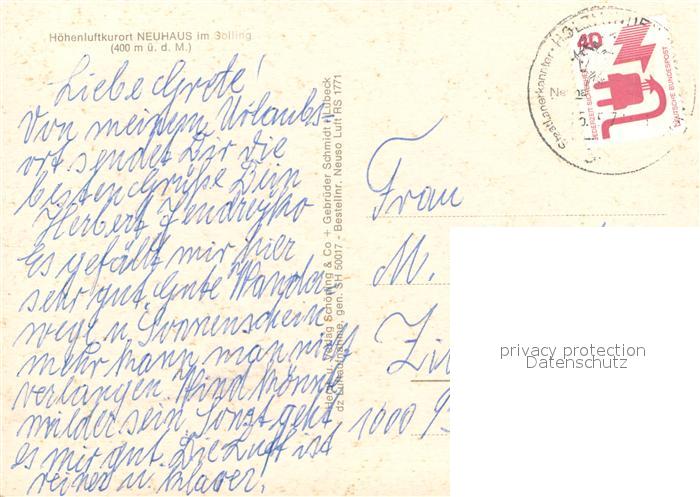 Höhenluftkurort NEUHAUS im Solling
(400 m ü. d. M.)
Liebe Grete!
Von meinem Urlaubs-
ort sendet Dir die
besten Grüße Dein
Herbert Jendreyko
Es gefällt mir hier
sehr gut. Gute Wander-
wege u. Sonnenschein
mehr kann man nicht
verlangen. Wind könnte
milder sein. Sonst geht
es mir gut. Die Luft ist
reiner u. klarer.
Herst. u. Verlag Schöning & Co + Gebrüder Schmidt - Lübeck
dz Luftaufnahme, gen. SH 50017 - Bestellnr. Neuso Luft RS 1771
Staatlich anerkannter
HOLZMINDEN
40
JEDERZEIT SICHERHEIT
DEUTSCHE BUNDESPOST
Frau
M.
1000
privacy protection
Datenschutz